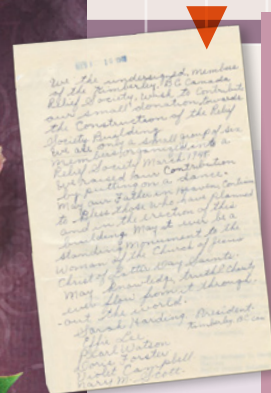 We the undersigned, Members
of the Kimberley, BC Canada
Relief Society, wish to Contribute
our small donation towards
the Construction of the Relief
Society Building.
We are only a small group of six
members organized into a
Relief Society March 1948
We raised our Contribution
by putting on a dance.
May our Father in Heaven, Continue
to Bless those who have planned
and in the erection of this
building May it ever be a
standing Monument to the
Woman of the Church of Jesus
Christ of Latter Day Saints.
May knowledge, truth & Charity
ever flow from it through-
out the world.
Sarah Harding President.
Kimberley, BC Can
Effie Lee
Pearl Watson
Doris Forster
Violet Campbell
Marie M. Scott.